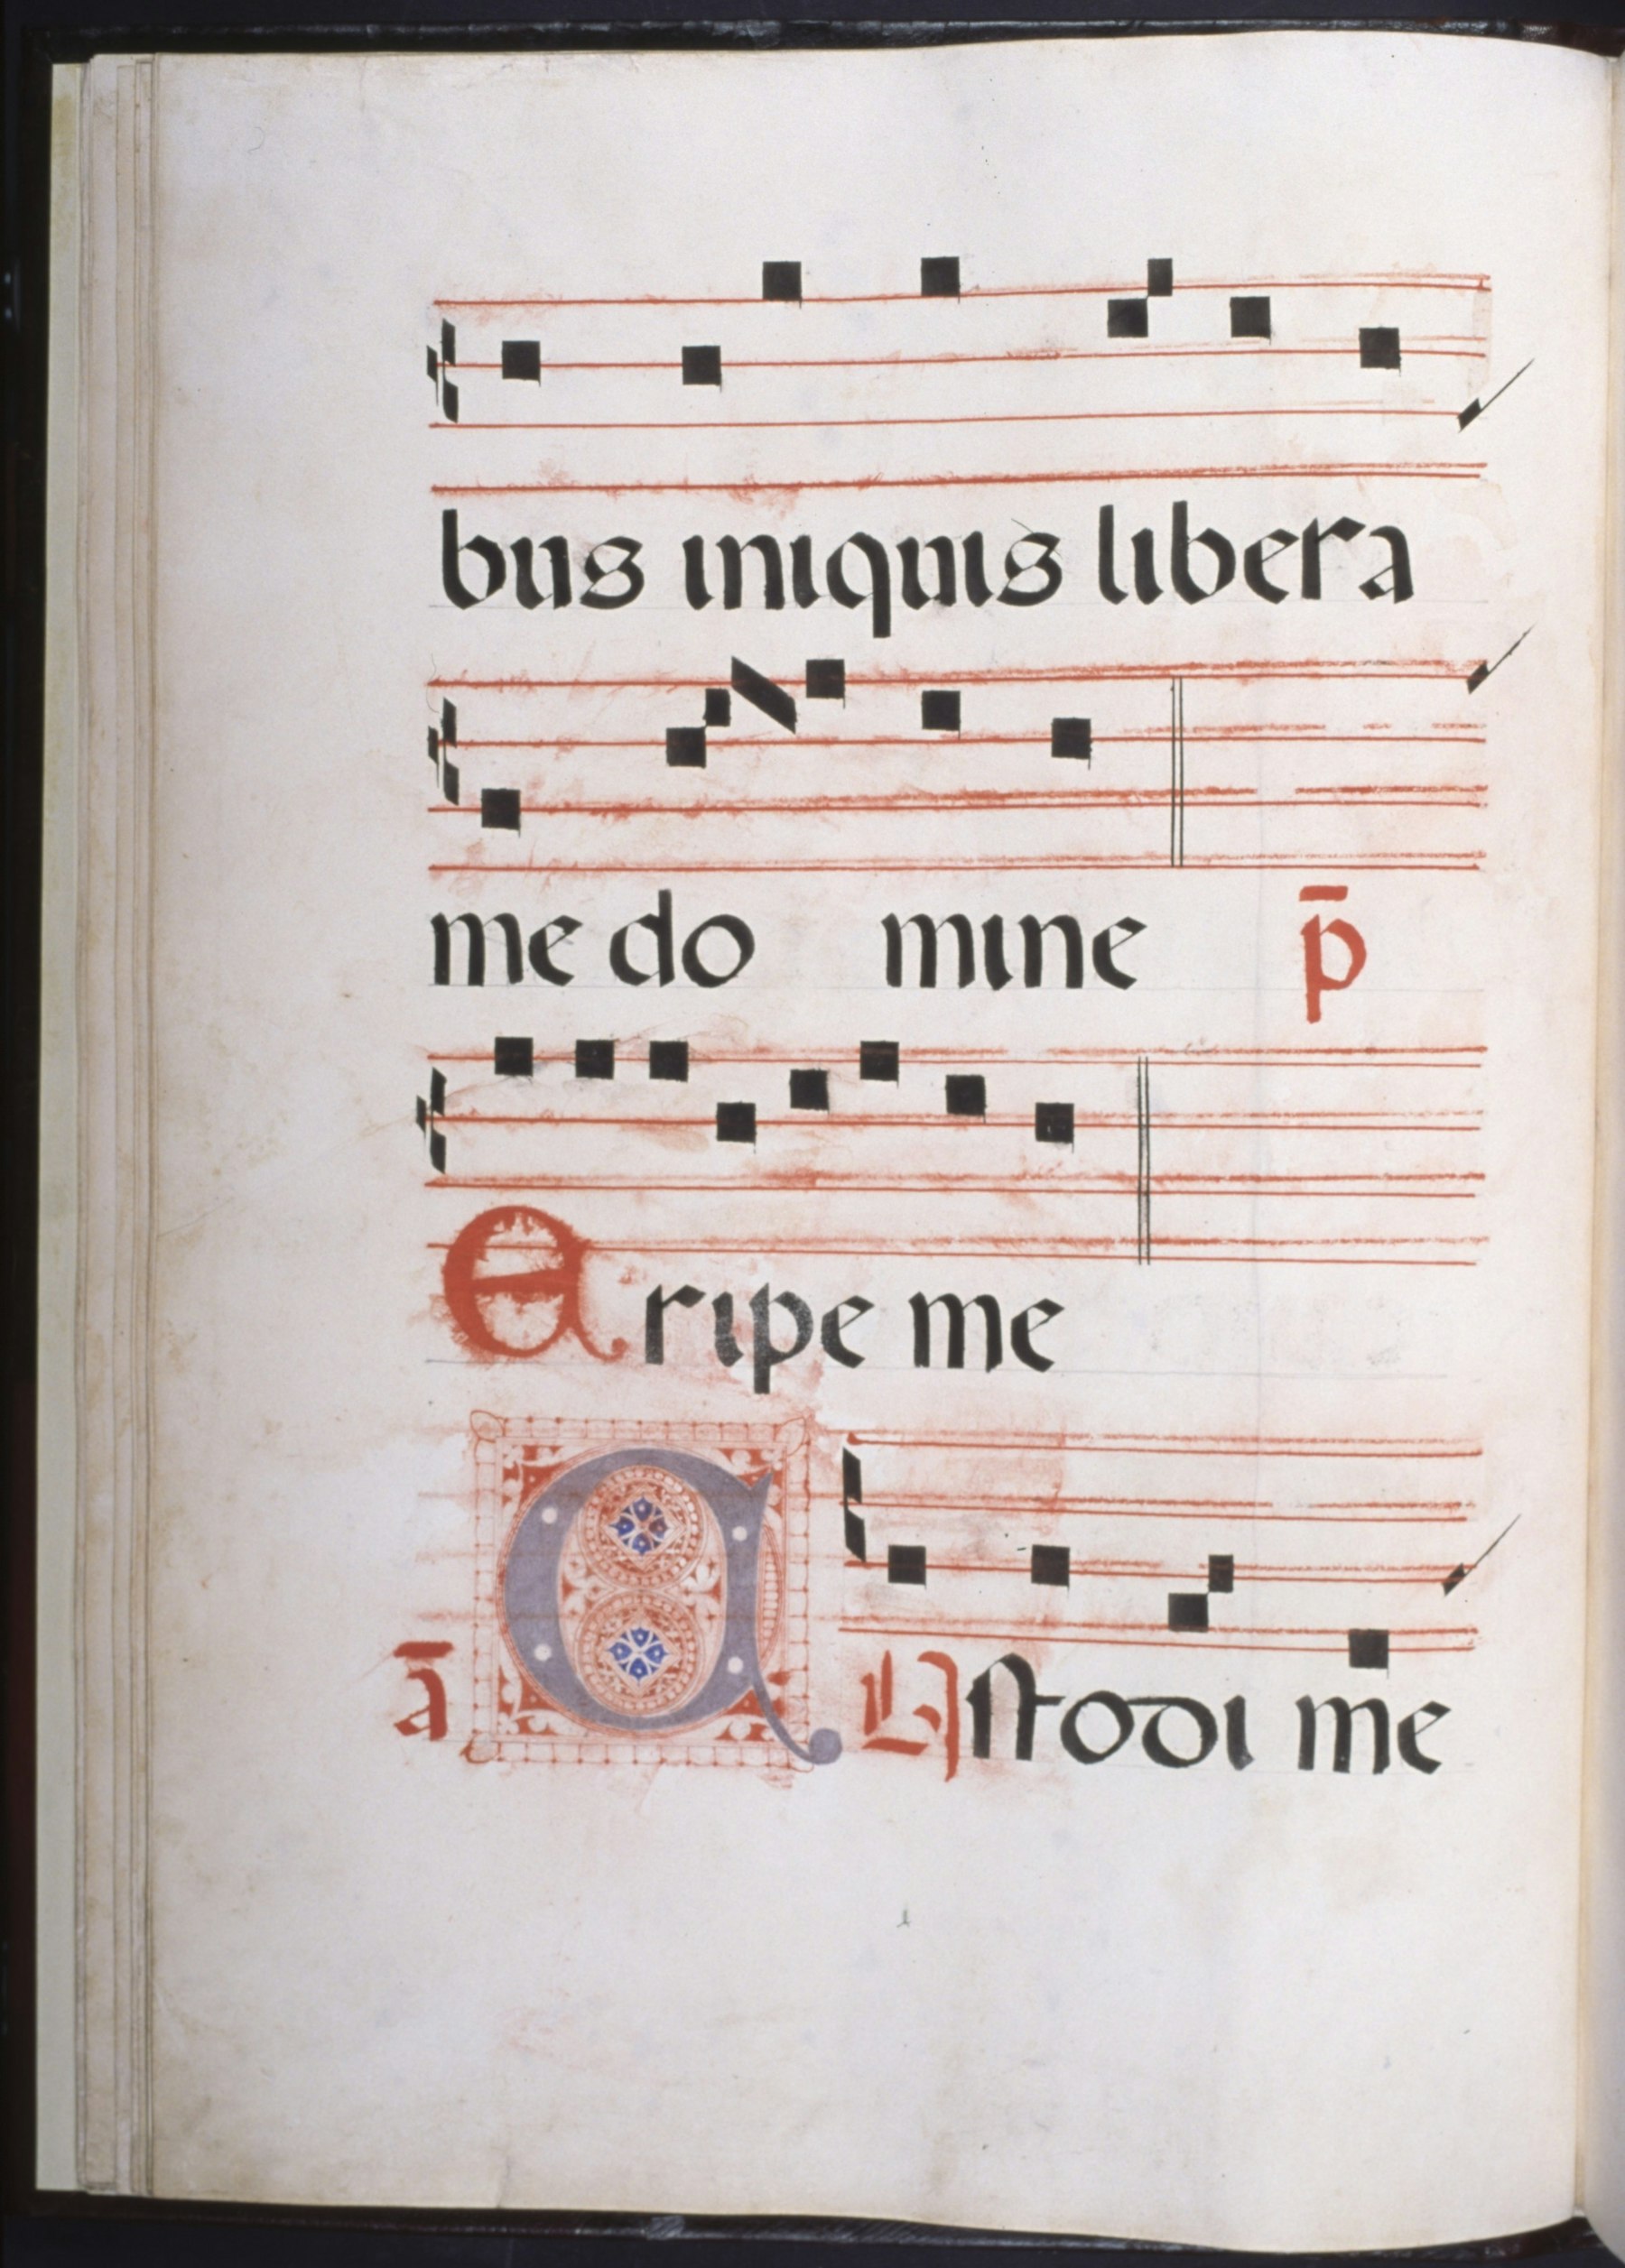 bus iniquis libera
me do mine p̄
Eripe me
ā CUstodi me